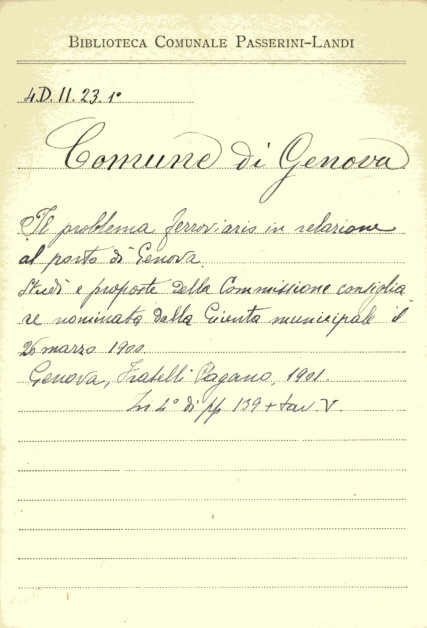 BIBLIOTECA COMUNALE PASSERINI-LANDI
4.D.II.23.1°
Comune di Genova
Il problema ferroviario in relazione
al porto di Genova.
Studi e proposte della Commissione consiglia
re nominata dalla Giunta municipale il
26 marzo 1900.
Genova, Fratelli Pagano, 1901.
In 4° di pp 139 + tav. V.